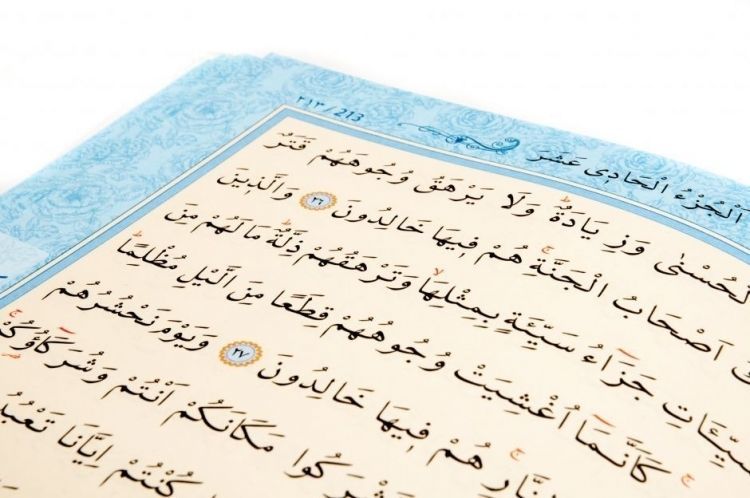 ٢١٣ / 213
اَلْجُزْءُ الْحَادِى عَشَرَ
الْحُسْنٰى وَزِيَادَةٌ وَلَا يَرْهَقُ وُجُوهَهُمْ قَتَرٌ
اَصْحَابُ الْجَنَّةِ هُمْ فِيهَا خَالِدُونَ ٢٦ وَالَّذِينَ
جَزَٓاءُ سَيِّئَةٍ بِمِثْلِهَا وَتَرْهَقُهُمْ ذِلَّةٌ مَا لَهُمْ مِنَ
كَاَنَّمَٓا اُغْشِيَتْ وُجُوهُهُمْ قِطَعًا مِنَ الَّيْلِ مُظْلِمًا
النَّارِ هُمْ فِيهَا خَالِدُونَ ٢٧ وَيَوْمَ نَحْشُرُهُمْ
مَكَانَكُمْ اَنْتُمْ وَشُرَكَٓاؤُكُمْ
كُنْتُمْ اِيَّانَا